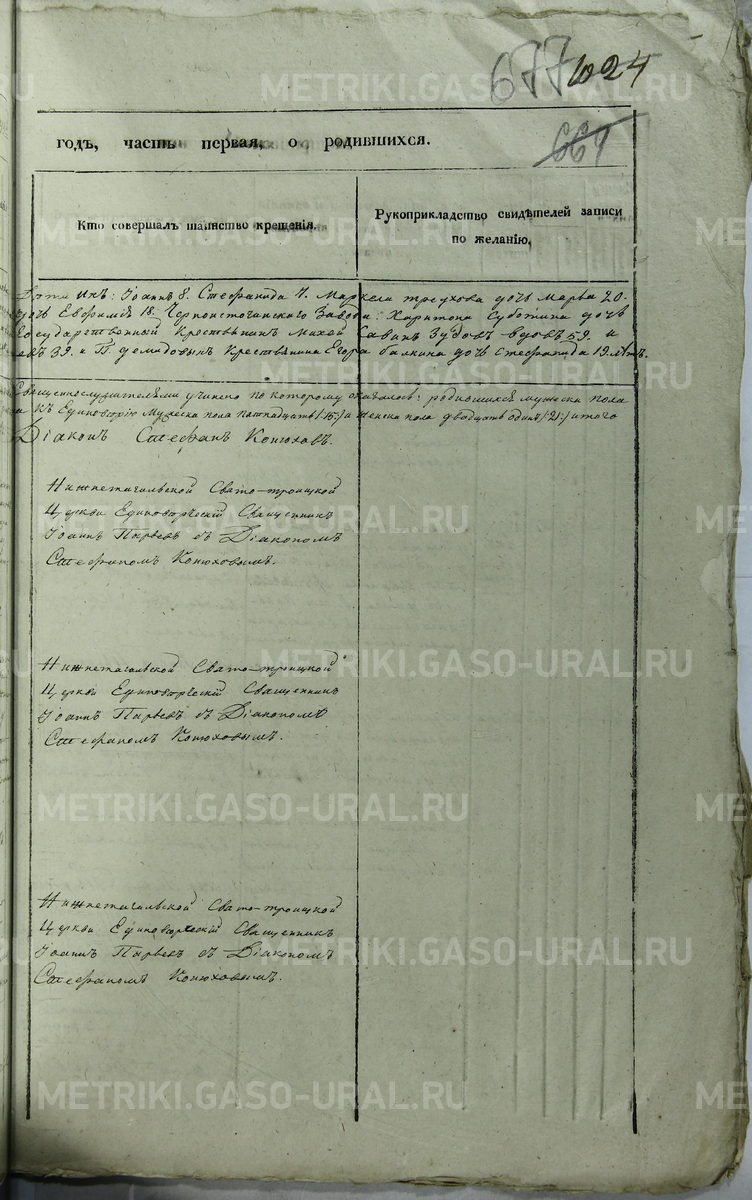 677 1024
667
годъ, часть первая, о родившихся.
Кто совершалъ таинство крещенія.
Рукоприкладство свидѣтелей записи
по желанію.
Дѣти ихъ: Іоаннъ 8. Стефанида 7. Маркела трѣухова дочь Марѳа 20.
дочь Евфимія 18. Черноисточинскаго Завода: Харитона Суботина дочь
Государственный Крестьянинъ Михей Савинъ Зудовъ вдовъ 59. и
39. и П. демидовыхъ Крестьянина Егора балкина дочь Стефанида 19 лѣтъ.
Священнослужителями учинено по которому оказалось: родившихся мужеска пола
къ Единовѣрію Мужеска пола пятнадцать /15:/ и женска пола двадцать одинъ /21:/ итого
Діаконъ Стефанъ Конюховъ.
Нижнетагильской Свято-троицкой
Церкви Единовѣрческій Священникъ
Іоаннъ Пырьевъ съ Діакономъ
Стефаномъ Конюховымъ.
Нижнетагильской Свято-троицкой
Церкви Единовѣрческій Священникъ
Іоаннъ Пырьевъ съ Діакономъ
Стефаномъ Конюховымъ.
Нижнетагильской Свято-троицкой
Церкви Единовѣрческій Священникъ
Іоаннъ Пырьевъ съ Діакономъ
Стефаномъ Конюховымъ.
METRIKI.GASO-URAL.RU